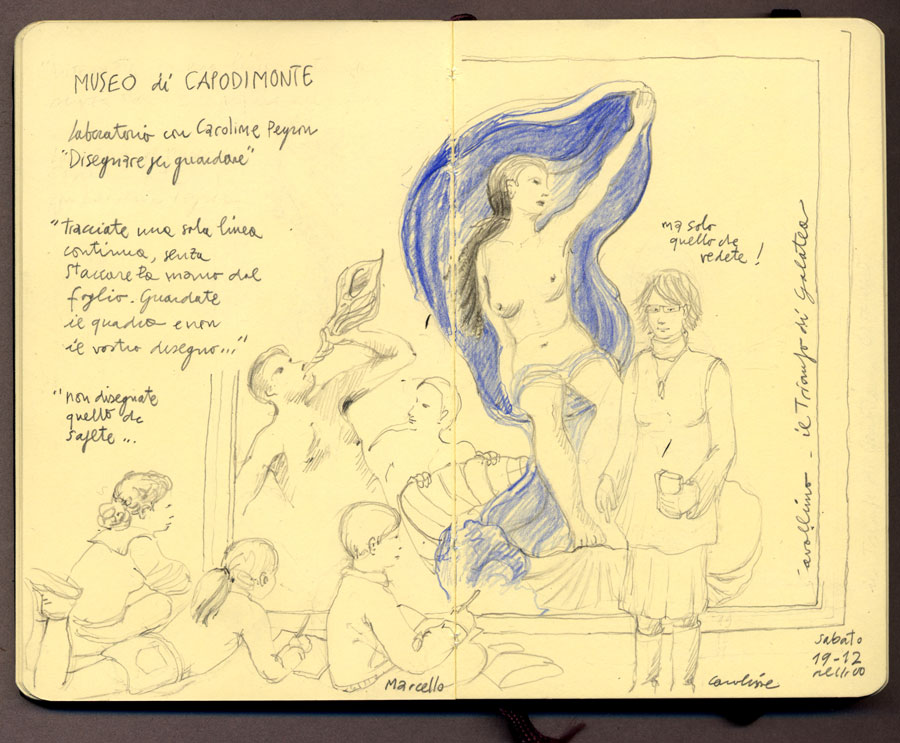 MUSEO di CAPODIMONTE
laboratorio con Caroline Peyron
"Disegnare per guardare"
"Tracciate una sola linea
continua, senza
staccare la mano dal
foglio. Guardate
il quadro e non
il vostro disegno..."
"non disegnate
quello che
sapete...
ma solo
quello che
vedete!
cavallino - il Trionfo di Galatea
Marcello
Caroline
sabato
19-12